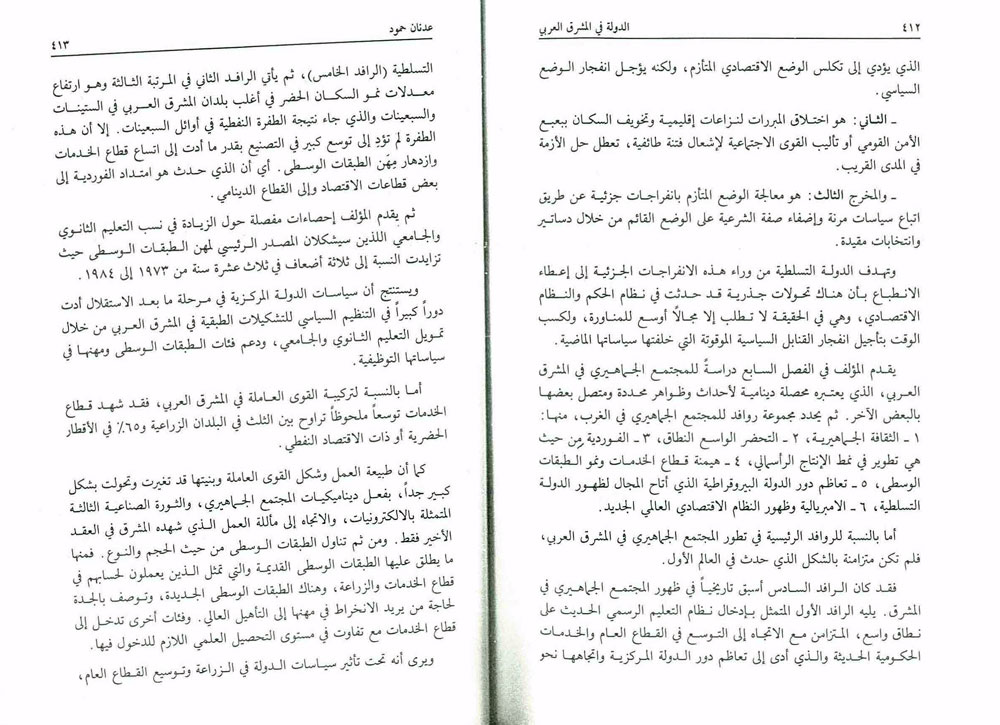 ٤١٢
الدولة في المشرق العربي
الذي يؤدي إلى تكلس الوضع الاقتصادي المتأزم، ولكنه يؤجل انفجار الوضع
السياسي.
ـ الثاني: هو اختلاق المبررات لنزاعات إقليمية وتخويف السكان ببعبع
الأمن القومي أو تأليب القوى الاجتماعية لإشعال فتنة طائفية، تعطل حل الأزمة
في المدى القريب.
ـ والمخرج الثالث: هو معالجة الوضع المتأزم بانفراجات جزئية عن طريق
اتباع سياسات مرنة وإضفاء صفة الشرعية على الوضع القائم من خلال دساتير
وانتخابات مقيدة.
وتهدف الدولة التسلطية من وراء هذه الانفراجات الجزئية إلى إعطاء
الانطباع بأن هناك تحولات جذرية قد حدثت في نظام الحكم والنظام
الاقتصادي، وهي في الحقيقة لا تطلب إلا مجالاً أوسع للمناورة، ولكسب
الوقت بتأجيل انفجار القنابل السياسية الموقوتة التي خلفتها سياساتها الماضية.
يقدم المؤلف في الفصل السابع دراسةً للمجتمع الجماهيري في المشرق
العربي، الذي يعتبره محصلة دينامية لأحداث وظواهر محددة ومتصل بعضها
بالبعض الآخر. ثم يحدد مجموعة روافد للمجتمع الجماهيري في الغرب، منها:
١ ـ الثقافة الجماهيرية، ٢ ـ التحضر الواسع النطاق، ٣ ـ الفوردية من حيث
هي تطوير في نمط الإنتاج الرأسمالي، ٤ ـ هيمنة قطاع الخدمات ونمو الطبقات
الوسطى، ٥ ـ تعاظم دور الدولة البيروقراطية الذي أتاح المجال لظهور الدولة
التسلطية، ٦ ـ الامبريالية وظهور النظام الاقتصادي العالمي الجديد.
أما بالنسبة للروافد الرئيسية في تطور المجتمع الجماهيري في المشرق العربي،
فلم تكن متزامنة بالشكل الذي حدث في العالم الأول.
فقد كان الرافد السادس أسبق تاريخياً في ظهور المجتمع الجماهيري في
المشرق. يليه الرافد الأول المتمثل بإدخال نظام التعليم الرسمي الحديث على
نطاق واسع، المتزامن مع الاتجاه إلى التوسع في القطاع العام والخدمات
الحكومية الحديثة والذي أدى إلى تعاظم دور الدولة المركزية واتجاهها نحو
عدنان حمود
٤١٣
التسلطية (الرافد الخامس)، ثم يأتي الرافد الثاني في المرتبة الثالثة وهو ارتفاع
معدلات نمو السكان الحضر في أغلب بلدان المشرق العربي في الستينات
والسبعينات والذي جاء نتيجة الطفرة النفطية في أوائل السبعينات. إلا أن هذه
الطفرة لم تؤدِ إلى توسع كبير في التصنيع بقدر ما أدت إلى اتساع قطاع الخدمات
وازدهار مِهَن الطبقات الوسطى. أي أن الذي حدث هو امتداد الفوردية إلى
بعض قطاعات الاقتصاد وإلى القطاع الدينامي.
ثم يقدم المؤلف إحصاءات مفصلة حول الزيادة في نسب التعليم الثانوي
والجامعي اللذين سيشكلان المصدر الرئيسي لمهن الطبقات الوسطى حيث
تزايدت النسبة إلى ثلاثة أضعاف في ثلاث عشرة سنة من ١٩٧٣ إلى ١٩٨٤.
ويستنتج أن سياسات الدولة المركزية في مرحلة ما بعد الاستقلال أدت
دوراً كبيراً في التنظيم السياسي للتشكيلات الطبقية في المشرق العربي من خلال
تمويل التعليم الثانوي والجامعي، ودعم فئات الطبقات الوسطى ومهنها في
سياساتها التوظيفية.
أما بالنسبة لتركيبة القوى العاملة في المشرق العربي، فقد شهد قطاع
الخدمات توسعاً ملحوظاً تراوح بين الثلث في البلدان الزراعية و٦٥٪ في الأقطار
الحضرية أو ذات الاقتصاد النفطي.
كما أن طبيعة العمل وشكل القوى العاملة وبنيتها قد تغيرت وتحولت بشكل
كبير جداً، بفعل ديناميكيات المجتمع الجماهيري، والثورة الصناعية الثالثة
المتمثلة بالالكترونيات، والاتجاه إلى مأللة العمل الذي شهده المشرق في العقد
الأخير فقط. ومن ثم تناول الطبقات الوسطى من حيث الحجم والنوع. فمنها
ما يطلق عليها الطبقات الوسطى القديمة والتي تمثل الذين يعملون لحسابهم في
قطاع الخدمات والزراعة، وهناك الطبقات الوسطى الجديدة، وتوصف بالجدة
لحاجة من يريد الانخراط في مهنها إلى التأهيل العالي. وفئات أخرى تدخل إلى
قطاع الخدمات مع تفاوت في مستوى التحصيل العلمي اللازم للدخول فيها.
ويرى أنه تحت تأثير سياسات الدولة في الزراعة وتوسيع القطاع العام،